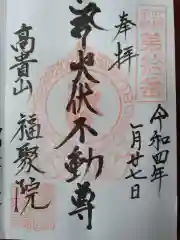 奉拝
令和四年
一月廿七日
火伏不動尊
高貴山
福聚院